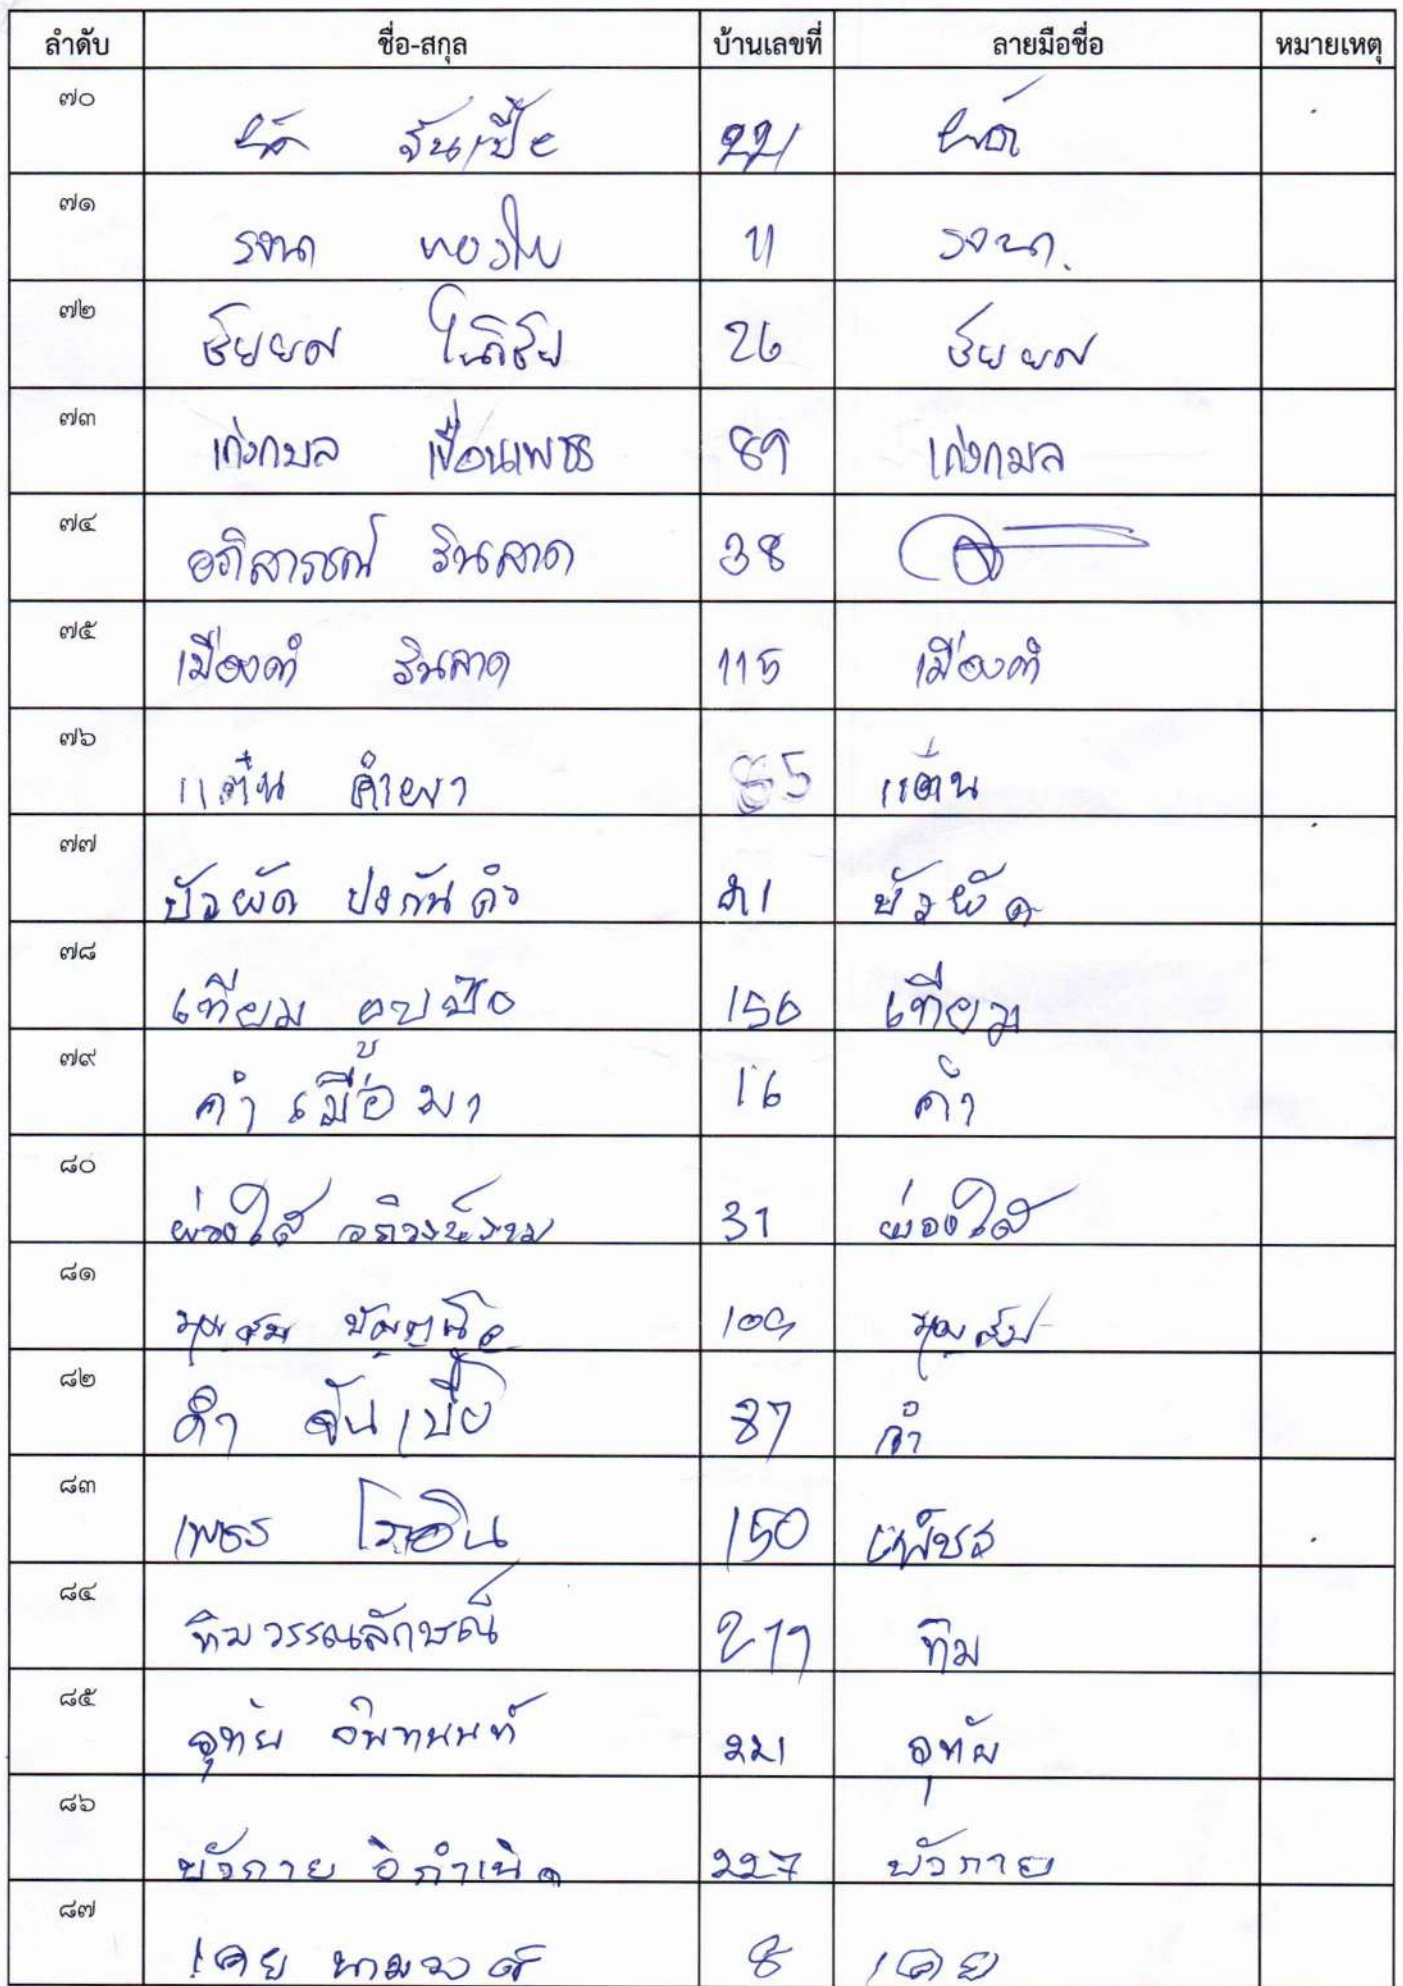 ลำดับ ชื่อ-สกุล บ้านเลขที่ ลายมือชื่อ หมายเหตุ
๗๐ 221
๗๑ รจนา ทองใบ 11 รจนา.
๗๒ ชัยยศ โนภิชัย 26 ชัยยศ
๗๓ เก่งกมล เขื่อนเพชร 89 เก่งกมล
๗๔ อภิสารณ์ รินลาด 38
๗๕ เมืองคำ รินลาด 115 เมืองคำ
๗๖ แต๋น คำผา 85 แต๋น
๗๗ บัวผัด ปงกันคำ บัวผัด
๗๘ เทียม 156 เทียม
๗๙ คำ 16 คำ
๘๐ ผ่องใส 31 ผ่องใส
๘๑ 109
๘๒ คำ จันเปี้ย 87 คำ
๘๓ เพชร 150 เพ็ชร
๘๔ ทิม วรรณลักษณ์ 211 ทิม
๘๕ อุทัย อินทนนท์ 221 อุทัย
๘๖ บัวกาย 227 บัวกาย
๘๗ เคย นามวงศ์ 8 เคย